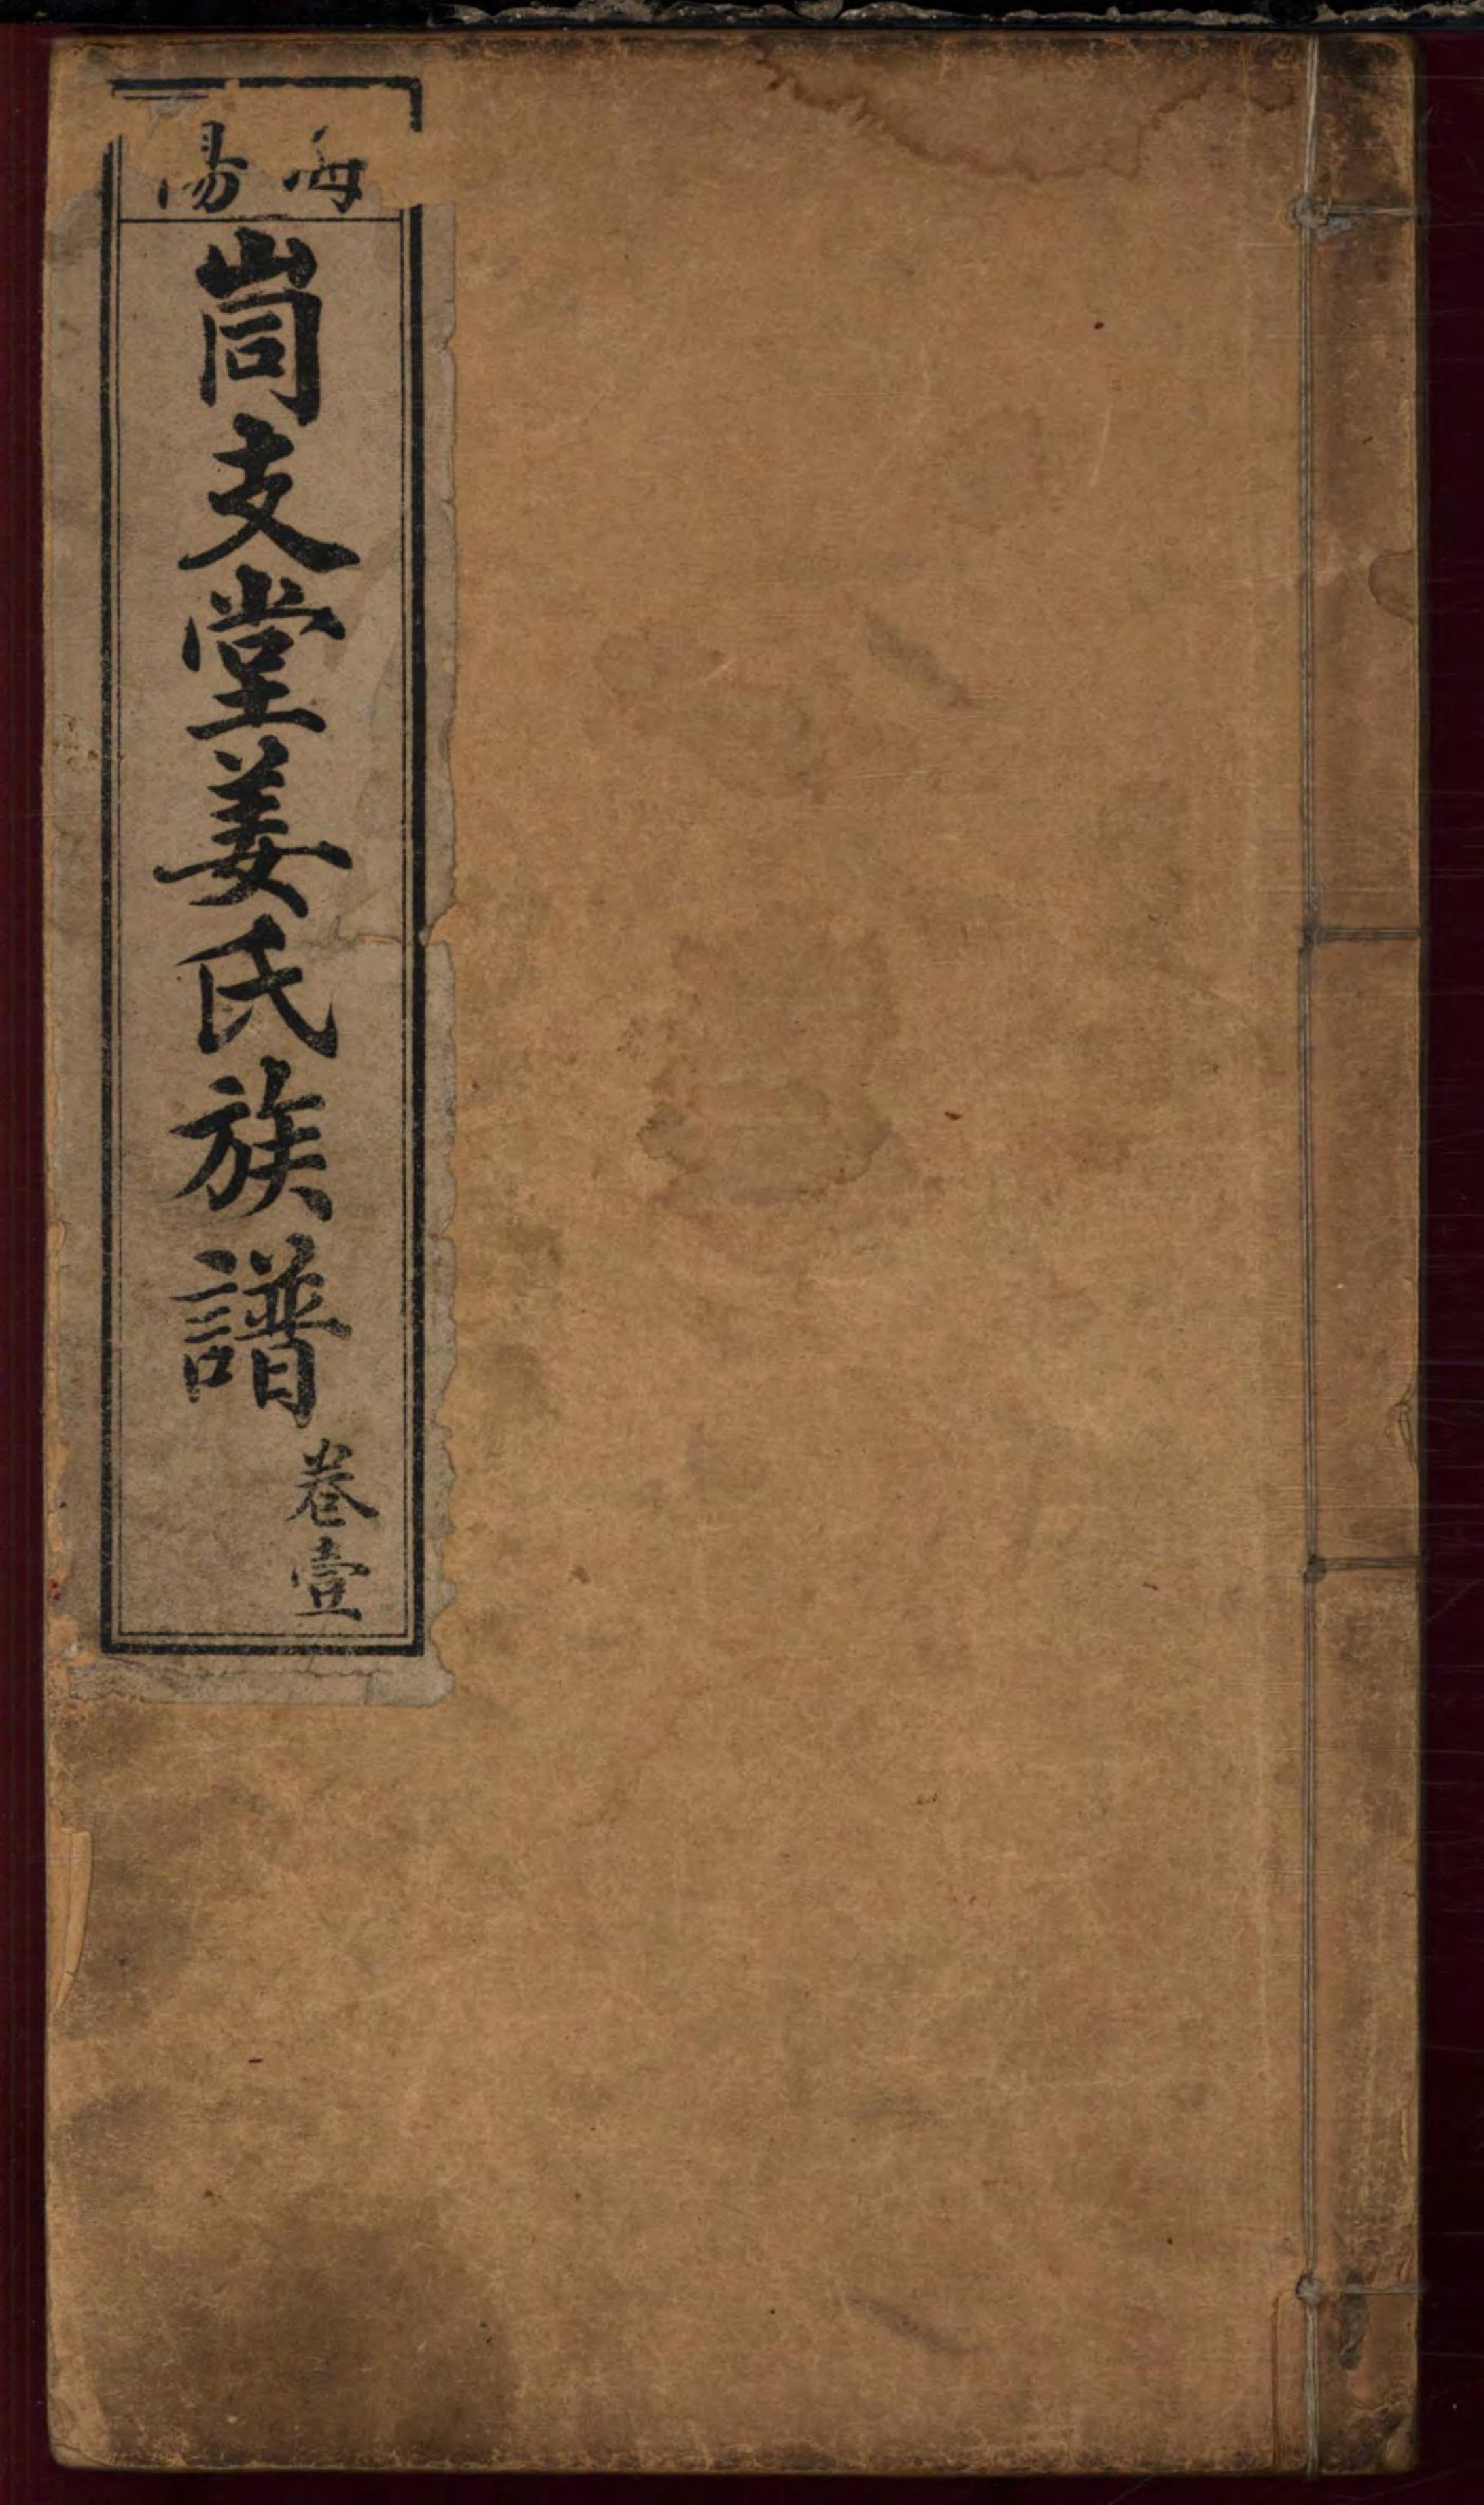 海陽
峝支堂姜氏族譜
卷壹